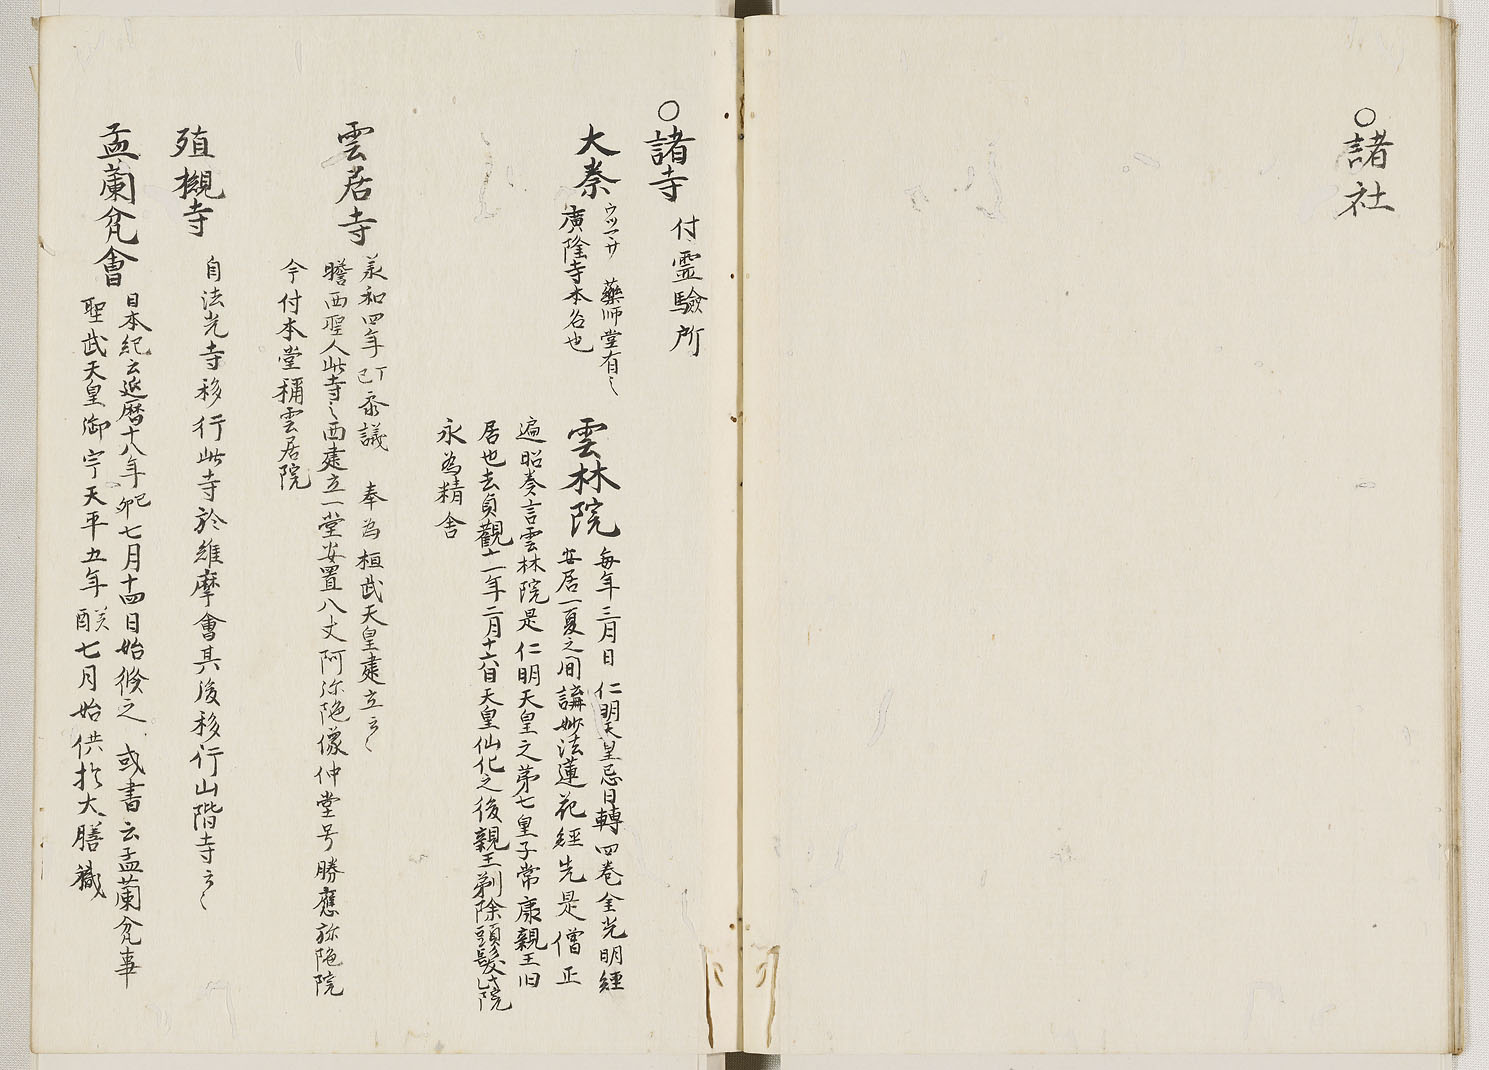 ○諸社
○諸寺 付霊驗所
大秦 ウツマサ 藥師堂有之
廣隆寺本名也
雲林院 毎年三月日仁明天皇忌日轉四巻金光明經
安居一夏之間講妙法蓮花經先是僧正
遍昭奏言雲林院是仁明天皇之第七皇子常康親王旧
居也去貞觀十一年二月十六日天皇仙化之後親王剃除頭髮此院
永為精舎
雲居寺 承和四年丁巳参議 奉為桓武天皇建立云々
瞻西聖人此寺之西建立一堂安置八丈阿弥陁像仲堂号勝應弥陁院
今付本堂稱雲居院
殖槻寺 自法光寺移行此寺於維摩會其後移行山階寺云々
盂蘭盆會 日本紀云延暦十八年己卯七月十四日始修之 或書云盂蘭盆事
聖武天皇御宇天平五年癸酉七月始供於大膳職